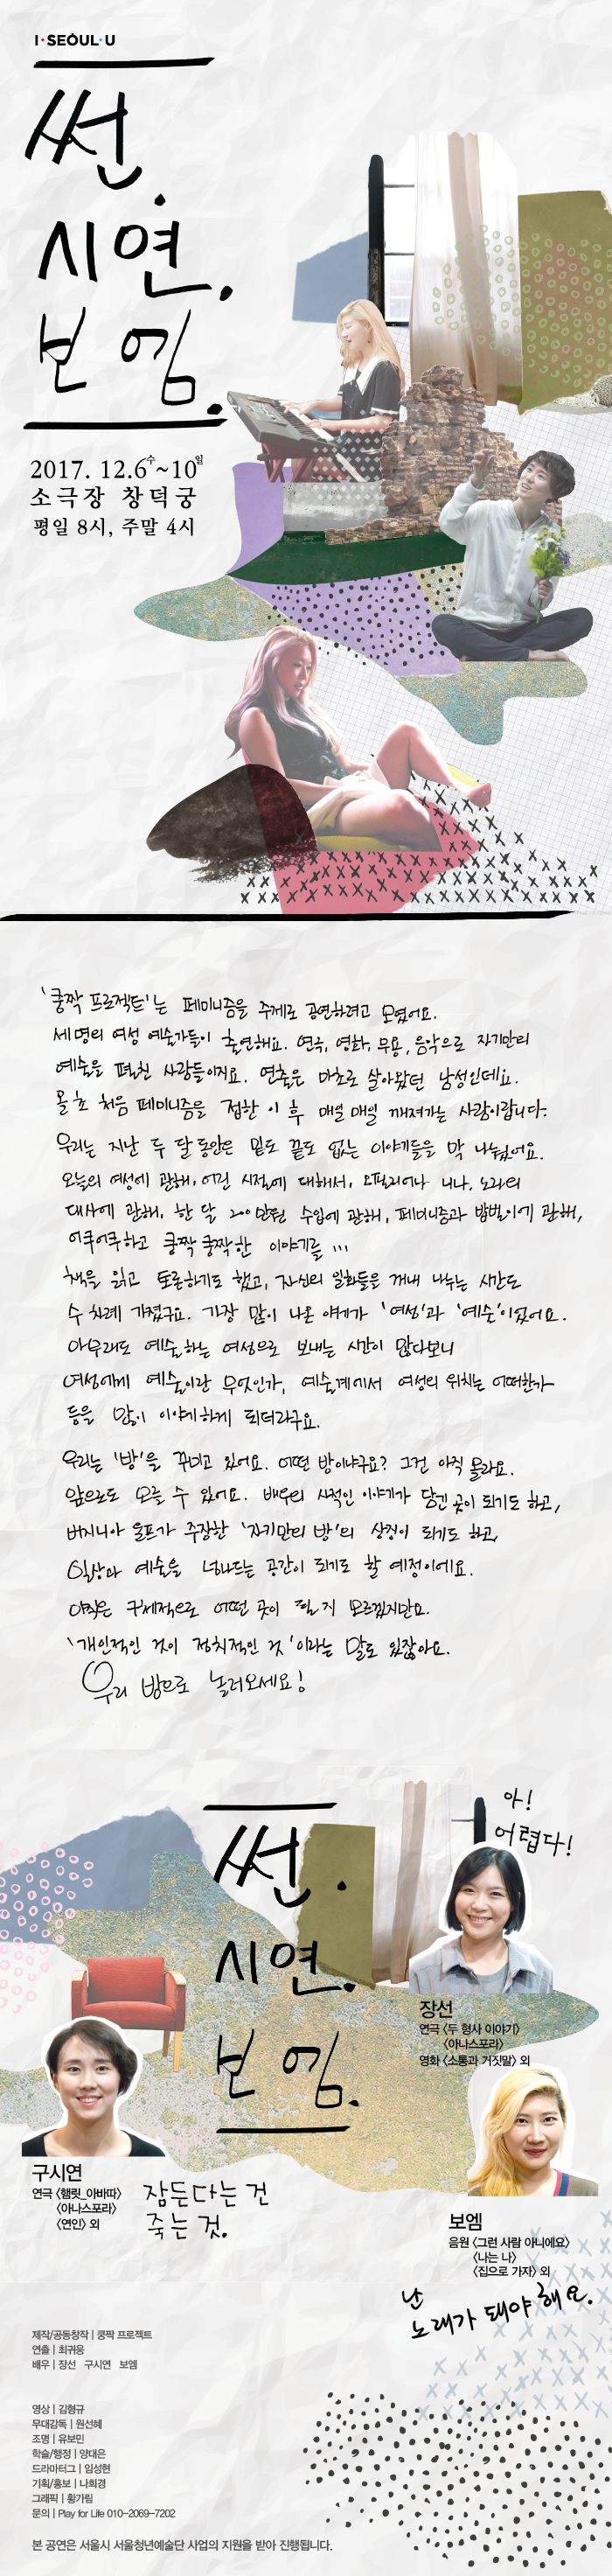 I·SEOUL·U
썬.
시연.
보엠.
2017. 12.6수~10일
소극장 창덕궁
평일 8시, 주말 4시
'쿵짝 프로젝트'는 페미니즘을 주제로 공연하려고 모였어요.
세 명의 여성 예술가들이 출연해요. 연극, 영화, 무용, 음악으로 자기만의
예술을 펼친 사람들이지요. 연출은 마초로 살아왔던 남성인데요.
올 초 처음 페미니즘을 접한 이 후 매일 매일 깨져가는 사람이랍니다.
우리는 지난 두 달 동안은 밑도 끝도 없는 이야기들을 막 나눴어요.
오늘의 여성에 관해, 어린 시절에 대해서, 오필리어나 니나, 노라의
대사에 관해, 한 달 200만원 수입에 관해, 페미니즘과 밥벌이에 관해,
어쿠어쿠하고 쿵짝 쿵짝한 이야기를 ...
책을 읽고 토론하기도 했고, 자신의 일화들을 꺼내 나누는 시간도
수 차례 가졌구요. 가장 많이 나온 얘기가 '여성'과 '예술'이었어요.
아무래도 예술하는 여성으로 보내는 시간이 많다보니
여성에게 예술이란 무엇인가, 예술계에서 여성의 위치는 어떠한가
등을 많이 이야기하게 되더라구요.
우리는 '방'을 꾸미고 있어요. 어떤 방이냐구요? 그건 아직 몰라요.
앞으로도 모를 수 있어요. 배우의 사적인 이야기가 담긴 곳이 되기도 하고,
버지니아 울프가 주장한 '자기만의 방'의 상징이 되기도 하고,
일상과 예술을 넘나드는 공간이 되기도 할 예정이에요.
아직은 구체적으로 어떤 곳이 될 지 모르겠지만요.
'개인적인 것이 정치적인 것'이라는 말도 있잖아요.
우리 방으로 놀러오세요!
썬.
시연.
보엠.
아!
어렵다!
장선
연극 <두 형사 이야기>
<아나스포라>
영화 <소통과 거짓말> 외
구시연
연극 <햄릿_아바따>
<아나스포라>
<연인> 외
잠든다는 건
죽는 것.
보엠
음원 <그런 사람 아니에요>
<나는 나>
<집으로 가자> 외
난
노래가 돼야 해요.
제작/공동창작 | 쿵짝 프로젝트
연출 | 최귀웅
배우 | 장선 구시연 보엠
영상 | 김형규
무대감독 | 원선혜
조명 | 유보민
학술/행정 | 양대은
드라마터그 | 임성현
기획/홍보 | 나희경
그래픽 | 황가림
문의 | Play for Life 010-2069-7202
본 공연은 서울시 서울청년예술단 사업의 지원을 받아 진행됩니다.